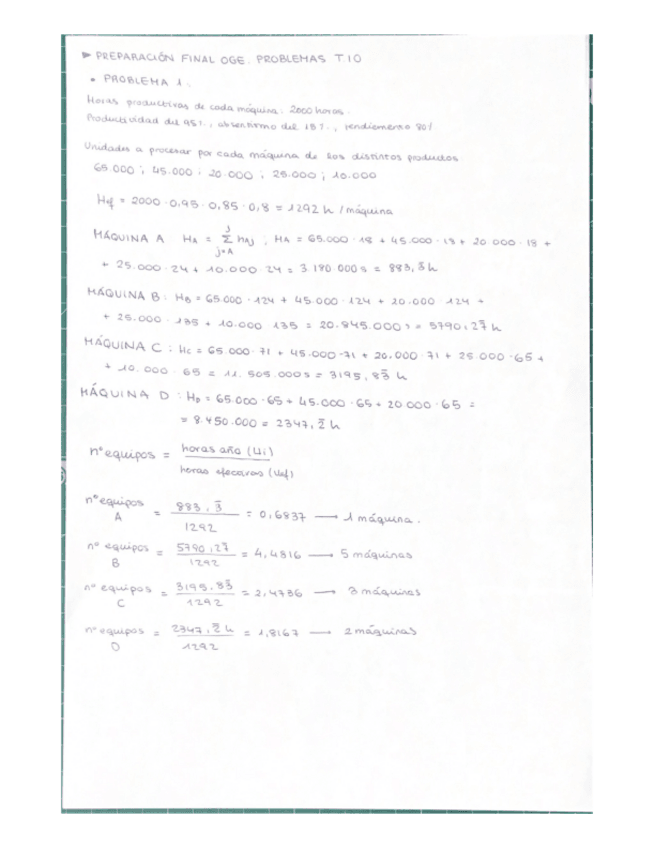 ► PREPARACIÓN FINAL OGE. PROBLEMAS T.10
• PROBLEMA 1.
Horas productivas de cada máquina: 2000 horas.
Productividad del 95%, absentismo del 15%, rendimiento 80%
Unidades a procesar por cada máquina de los distintos productos
65.000 ; 45.000 ; 20.000 ; 25.000 ; 10.000
Hef = 2000 · 0,95 · 0,85 · 0,8 = 1292 h / máquina
MÁQUINA A HA = Σ hAj ; HA = 65.000 · 18 + 45.000 · 18 + 20.000 · 18 +
j
j=A
+ 25.000 · 24 + 10.000 · 24 = 3.180.000 s = 883,3̄ h
MÁQUINA B : HB = 65.000 · 124 + 45.000 · 124 + 20.000 · 124 +
+ 25.000 · 135 + 10.000 135 = 20.845.000 s = 5790,27̄ h
MÁQUINA C : Hc = 65.000 · 71 + 45.000 · 71 + 20.000 · 71 + 25.000 · 65 +
+ 10.000 · 65 = 11.505.000 s = 3195,83̄ h
MÁQUINA D : HD = 65.000 · 65 + 45.000 · 65 + 20.000 · 65 =
= 8.450.000 = 2347,2̄ h
nº equipos = horas año (Hi)
horas efectivas (Hef)
nº equipos A = 883,3̄ / 1292 = 0,6837 → 1 máquina.
nº equipos B = 5790,27̄ / 1292 = 4,4816 → 5 máquinas
nº equipos C = 3195,83̄ / 1292 = 2,4736 → 3 máquinas
nº equipos D = 2347,2̄ h / 1292 = 1,8167 → 2 máquinas